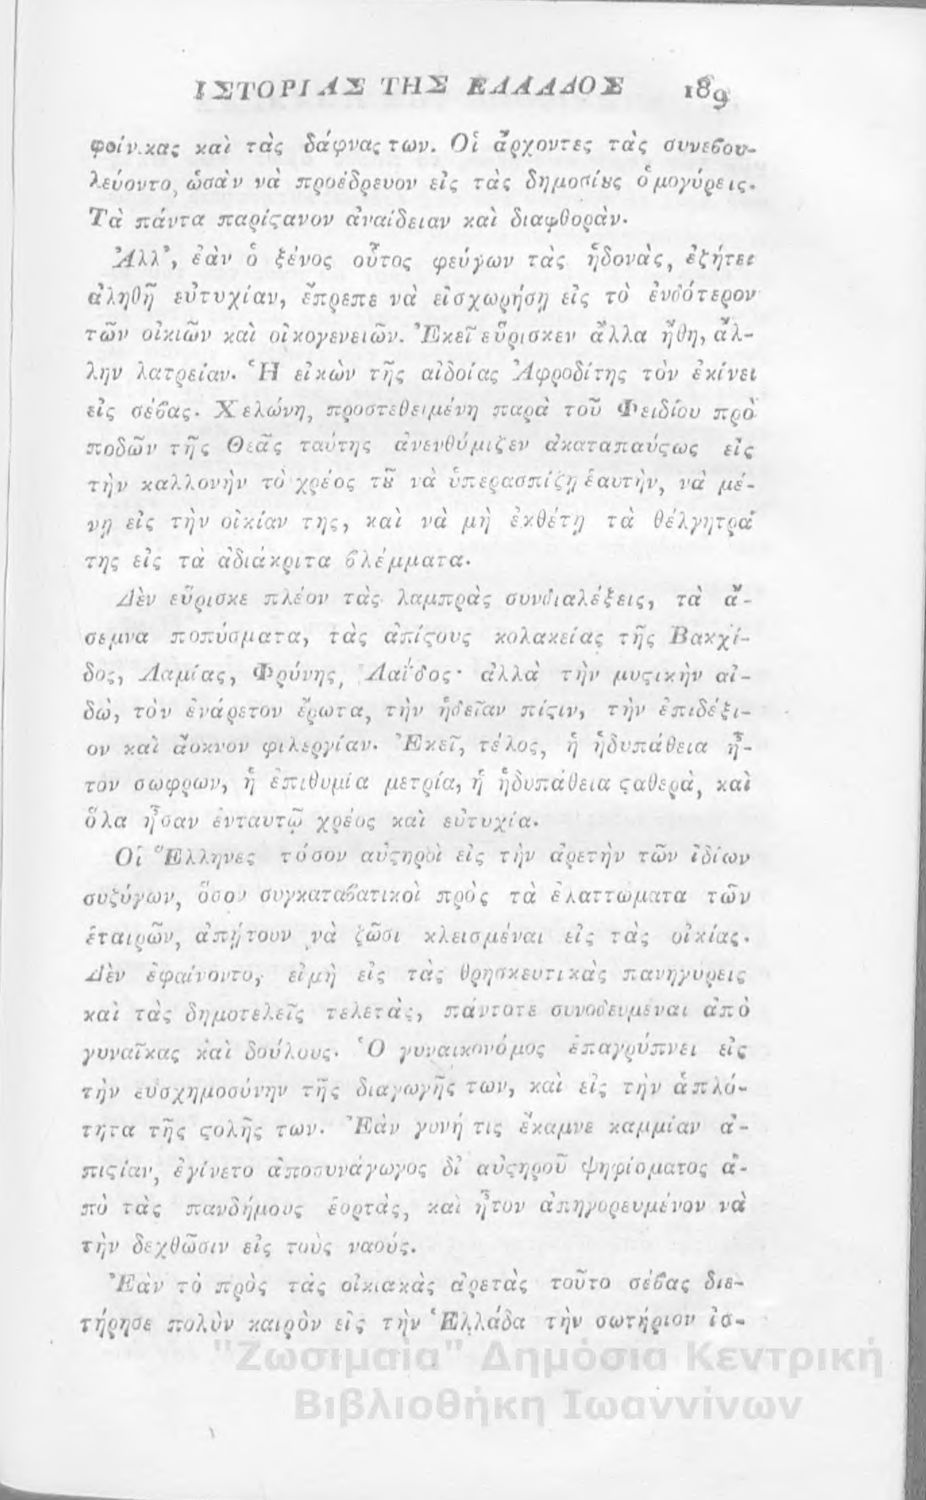 ΙΣΤΟΡΙΑΣ ΤΗΣ ΕΛΛΑΔΟΣ 189
φοίνικας καὶ τὰς δάφνας των. Οἱ ἄρχοντες τὰς συνεϐου-
λεύοντο, ὡσὰν νὰ προέδρευον εἰς τὰς δημοσίȣς ὁμογύρεις.
Τὰ πάντα παρίςανον ἀναίδειαν καὶ διαφθοράν.
Ἀλλ', ἐὰν ὁ ξένος οὗτος φεύγων τὰς ἡδονὰς, ἐζήτει
ἀληθῆ εὐτυχίαν, ἔπρεπε νὰ εἰσχωρήσῃ εἰς τὸ ἐνδότερον
τῶν οἰκιῶν καὶ οἰκογενειῶν. Ἐκεῖ εὕρισκεν ἄλλα ἤθη, ἄλ-
λην λατρείαν. Ἡ εἰκὼν τῆς αἰδοίας Ἀφροδίτης τὸν ἐκίνει
εἰς σέϐας. Χελώνη, προστεθειμένη παρὰ τοῦ Φειδίου πρὸ
ποδῶν τῆς Θεᾶς ταύτης ἀνενθύμιζεν ἀκαταπαύςως εἰς
τὴν καλλονὴν τὸ χρέος τȣ͂ νὰ ὑπερασπίζῃ ἑαυτὴν, νὰ μέ-
νῃ εἰς τὴν οἰκίαν της, καὶ νὰ μὴ ἐκθέτῃ τὰ θέλγητρά
της εἰς τὰ ἀδιάκριτα ϐλέμματα.
Δὲν εὕρισκε πλέον τὰς λαμπρὰς συνδιαλέξεις, τὰ ἄ-
σεμνα ποπύσματα, τὰς ἀπίςους κολακείας τῆς Βακχί-
δος, Λαμίας, Φρύνης, Λαΐδος· ἀλλὰ τὴν μυςικὴν αἰ-
δὼ, τὸν ἐνάρετον ἔρωτα, τὴν ἡδεῖαν πίςιν, τὴν ἐπιδέξι-
ον καὶ ἄοκνον φιλεργίαν. Ἐκεῖ, τέλος, ἡ ἡδυπάθεια ἦ-
τον σώφρων, ἡ ἐπιθυμία μετρία, ἡ ἡδυπάθεια ςαθερὰ, καὶ
ὅλα ἦσαν ἐνταυτῷ χρέος καὶ εὐτυχία.
Οἱ Ἕλληνες τόσον αὐςηροὶ εἰς τὴν ἀρετὴν τῶν ἰδίων
συζύγων, ὅσον συγκαταϐατικοὶ πρὸς τὰ ἐλαττώματα τῶν
ἑταιρῶν, ἀπῄτουν νὰ ζῶσι κλεισμέναι εἰς τὰς οἰκίας.
Δὲν ἐφαίνοντο, εἰμὴ εἰς τὰς θρησκευτικὰς πανηγύρεις
καὶ τὰς δημοτελεῖς τελετὰς, πάντοτε συνοδευμέναι ἀπὸ
γυναῖκας καὶ δούλους. Ὁ γυναικονόμος ἐπαγρύπνει εἰς
τὴν εὐσχημοσύνην τῆς διαγωγῆς των, καὶ εἰς τὴν ἁπλό-
τητα τῆς ςολῆς των. Ἐὰν γυνή τις ἔκαμνε καμμίαν ἀ-
πιςίαν, ἐγίνετο ἀποσυνάγωγος δι' αὐςηροῦ ψηφίσματος ἀ-
πὸ τὰς πανδήμους ἑορτὰς, καὶ ἦτον ἀπηγορευμένον νὰ
τὴν δεχθῶσιν εἰς τοὺς ναούς.
Ἐὰν τὸ πρὸς τὰς οἰκιακὰς ἀρετὰς τοῦτο σέϐας διε-
τήρησε πολὺν καιρὸν εἰς τὴν Ἑλλάδα τὴν σωτήριον ἰσ-
"Ζωσιμαία" Δημόσια Κεντρική
Βιβλιοθήκη Ιωαννίνων